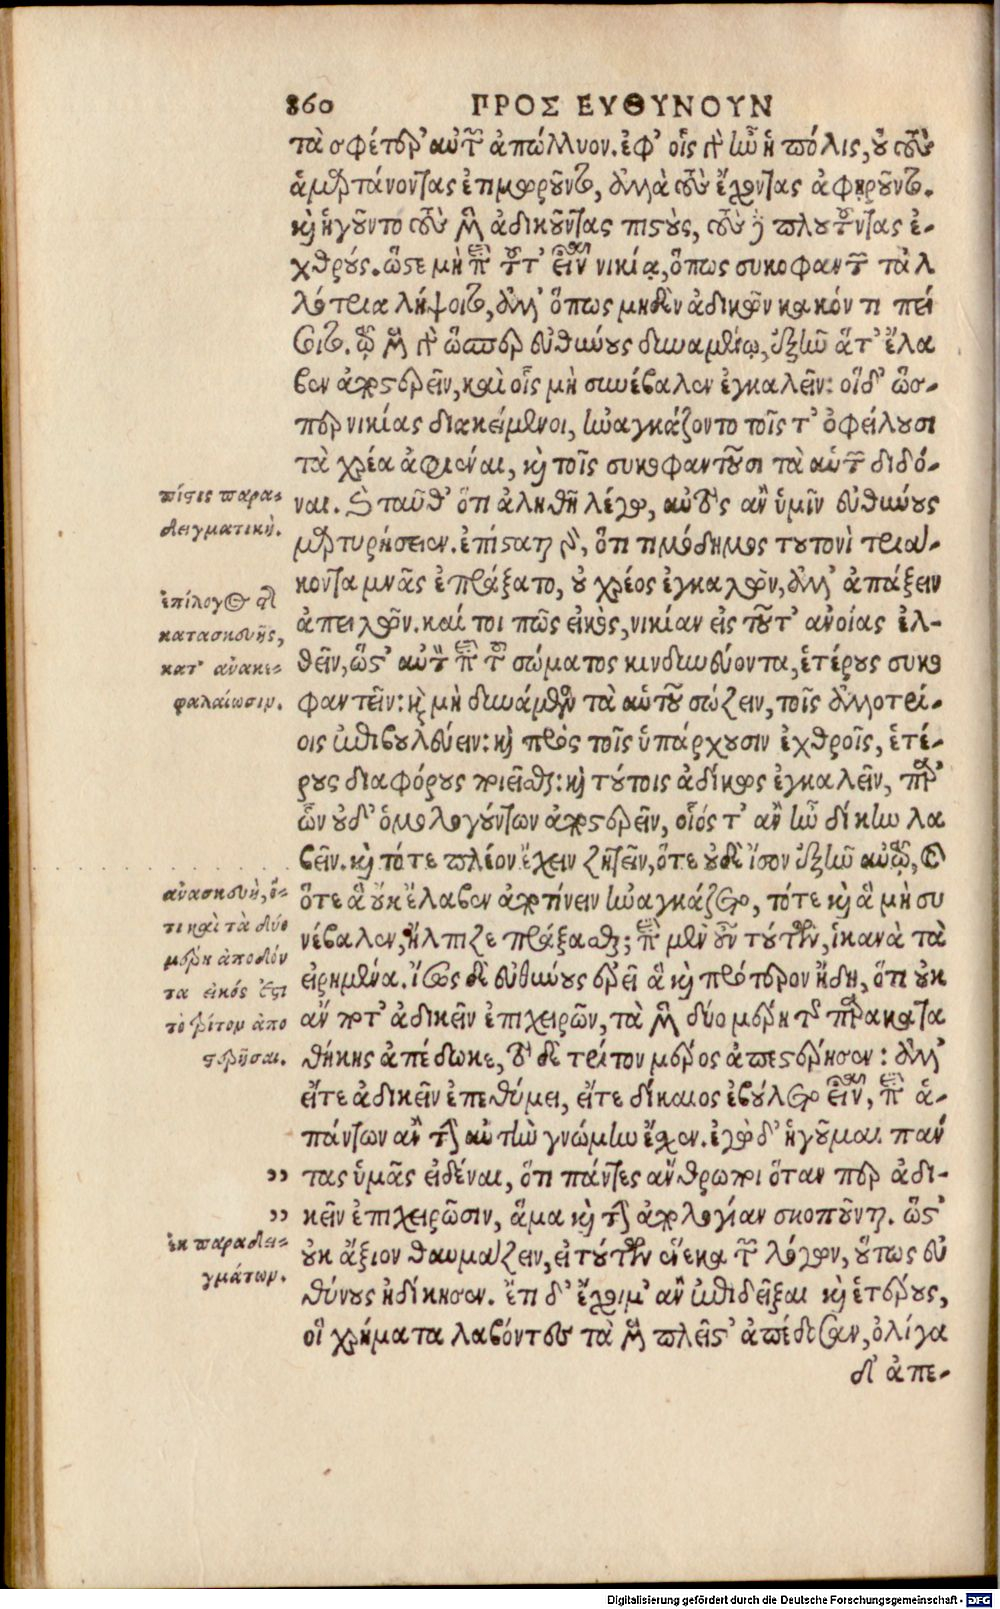 860 ΠΡΟΣ ΕΥΘΥΝΟΥΝ
τὰ σφέτερ' αὐτῶν ἀπώλλυον. ἐφ' οἷς γὰρ ἦν ἡ πόλις, οὐ τοὺς
ἁμαρτάνοντας ἐτιμωροῦντο, ἀλλὰ τοὺς ἔχοντας ἀφῃροῦντο.
καὶ ἡγοῦντο τοὺς μὲν ἀδικοῦντας πιστοὺς, τοὺς δὲ πλουτοῦντας ἐ-
χθρούς. ὥστε μὴ ἐπὶ τοῦτ' εἶναι νικίᾳ, ὅπως συκοφαντῶν τὰ ἀλ
λότρια λήψοιτο, ἀλλ' ὅπως μηδὲν ἀδικῶν κακόν τι πεί
σοιτο. τῷ μὲν γὰρ ὥσπερ εὐθύνους δυναμένῳ, ἐξῆν ἅτ' ἔλα
βον ἀποστερεῖν, καὶ οἷς μὴ συνέβαλον ἐγκαλεῖν: οἵδ' ὥσ-
περ νικίας διακείμενοι, ἠναγκάζοντο τοῖς τ' ὀφείλουσι
τὰ χρέα ἀφιέναι, καὶ τοῖς συκοφαντοῦσι τὰ αὑτῶν διδό-
ναι. καὶ ταῦθ' ὅτι ἀληθῆ λέγω, αὐτὸς ἂν ὑμῖν εὐθύνους
μαρτυρήσειεν. ἐπίσταται γὰρ, ὅτι τιμόδημος τουτονὶ τριά-
κοντα μνᾶς ἐπράξατο, οὐ χρέος ἐγκαλῶν, ἀλλ' ἀπάξειν
ἀπειλῶν. καί τοι πῶς εἰκὸς, νικίαν εἰς τοῦτ' ἀνοίας ἐλ-
θεῖν, ὥστ' αὐτὸν ἐπὶ τοῦ σώματος κινδυνεύοντα, ἑτέρους συκο
φαντεῖν: καὶ μὴ δυνάμενον τὰ αὑτοῦ σώζειν, τοῖς ἀλλοτρί-
οις ἐπιβουλεύειν: καὶ πρὸς τοῖς ὑπάρχουσιν ἐχθροῖς, ἑτέ-
ρους διαφόρους ποιεῖσθαι: καὶ τούτοις ἀδίκως ἐγκαλεῖν, παρ'
ὧν οὐδ' ὁμολογούντων ἀποστερεῖν, οἷός τ' ἂν ἦν δίκην λα
βεῖν. καὶ τότε πλέον ἔχειν ζητεῖν, ὅτε οὐδὲ ἴσον ἐξῆν αὐτῷ, καὶ
ὅτε ἃ οὐκ ἔλαβεν ἀποτίνειν ἠναγκάζετο, τότε καὶ ἃ μὴ συ
νέβαλον, ἤλπιζε πράξασθαι; ἐπὶ μὲν οὖν τούτων, ἱκανὰ τὰ
εἰρημένα. ἴσως δὲ εὐθύνους ἐρεῖ ἃ καὶ πρότερον ἤδη, ὅτι οὐκ
ἄν ποτ' ἀδικεῖν ἐπιχειρῶν, τὰ μὲν δύο μέρη τῆς παρακατα
θήκης ἀπέδωκε, τὸ δὲ τρίτον μέρος ἀπεστέρησεν: ἀλλ'
εἴτε ἀδικεῖν ἐπεθύμει, εἴτε δίκαιος ἐβούλετο εἶναι, ἐπὶ ἁ-
πάντων ἂν τὴν αὐτὴν γνώμην ἔσχεν. ἐγὼ δ' ἡγοῦμαι πάν
„ τας ὑμᾶς εἰδέναι, ὅτι πάντες ἄνθρωποι ὅταν περ ἀδι-
„ κεῖν ἐπιχειρῶσιν, ἅμα καὶ τὴν ἀπολογίαν σκοποῦνται. ὥστ'
οὐκ ἄξιον θαυμάζειν, εἰ τούτων ἕνεκα τῶν λόγων, οὕτως εὐ
θύνους ἠδίκησεν. ἔτι δ' ἔχοιμ' ἂν ἐπιδεῖξαι καὶ ἑτέρους,
οἳ χρήματα λαβόντες τὰ μὲν πλεῖστ' ἀπέδοσαν, ὀλίγα
δ' ἀπε-
πίστις παρα-
δειγματική.
ἐπίλογος τῆς
κατασκευῆς,
κατ' ἀνακε-
φαλαίωσιν.
ἀνασκευὴ, ὅ-
τι καὶ τὰ δύο
μέρη ἀποδόν
τα εἰκός ἐστι
τὸ τρίτον ἀπο
στερῆσαι.
ἐκ παραδει-
γμάτων.
Digitalisierung gefördert durch die Deutsche Forschungsgemeinschaft - DFG